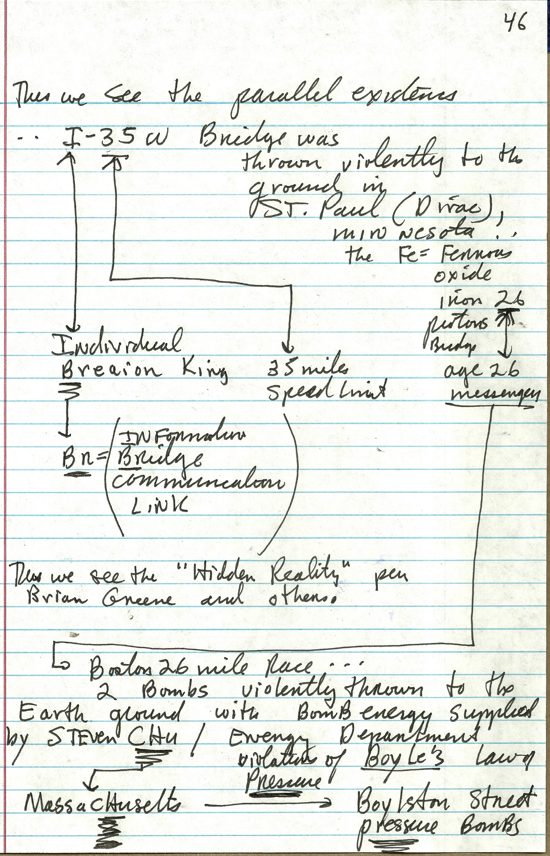 46
Thus we see the parallel existens
.. I-35 W Bridge was
thrown violently to the
ground in
ST. Paul (Dirac),
minnesota ..
the Fe = Ferrous
oxide
iron 26
protons
Bridge
Individual
Breaion King
35 miles
Speed Limit
age 26
messenger
Br = (INFormation
Bridge
communication
LINK)
Thus we see the "Hidden Reality" per
Brian Greene and others.
Boston 26 mile Race ...
2 Bombs violently thrown to the
Earth ground with BomB energy supplied
by STEVen CHU / Energy Department
violation of Boyle's law of
Pressure
MassaCHusetts
Boylston Street
pressure BomBs